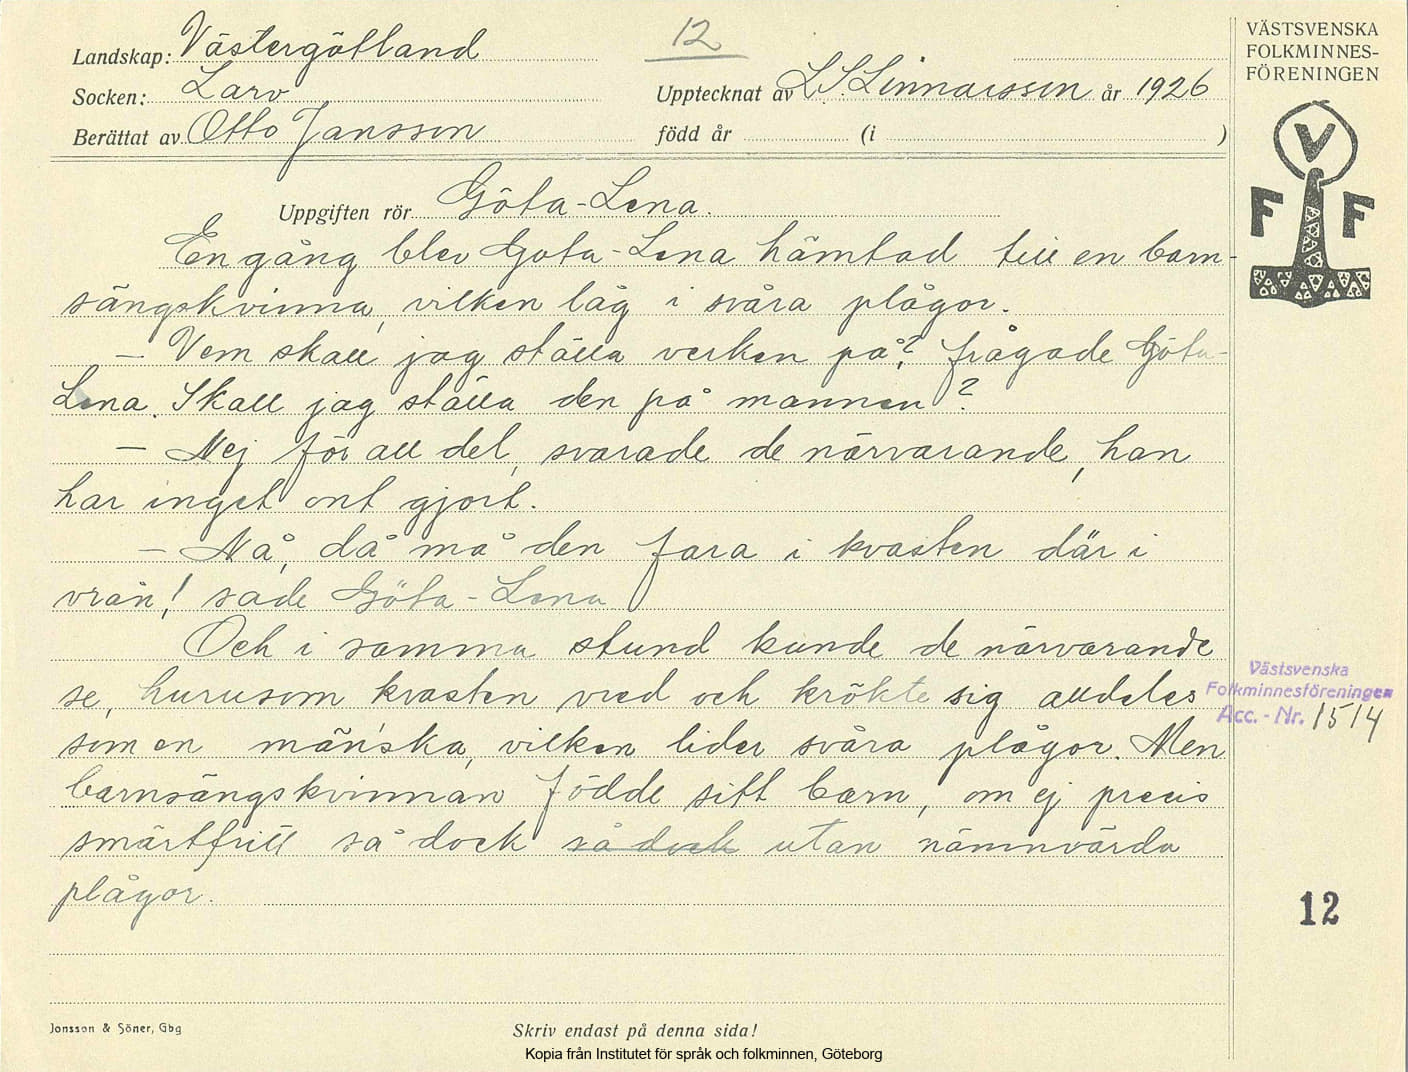 Landskap: Västergötland
12
Socken: Larv
Upptecknat av L.S. Linnarsson år 1926
Berättat av Otto Jansson
född år (i )
Uppgiften rör Göta-Lena.
En gång blev Göta-Lena hämtad till en barn-
sängskvinna, vilken låg i svåra plågor.
– Vem skall jag ställa verken på? frågade Göta-
Lena. Skall jag ställa den på mannen?
– Nej för all del, svarade de närvarande, han
har inget ont gjort.
– Nå, då må den fara i kvasten där i
vrån! sade Göta-Lena
Och i samma stund kunde de närvarande
se, hurusom kvasten vred och krökte sig alldeles
som en mänska, vilken lider svåra plågor. Men
barnsängskvinnan födde sitt barn, om ej precis
smärtfritt så dock så dock utan nämnvärda
plågor.
Jonsson & Söner, Gbg
Skriv endast på denna sida!
Kopia från Institutet för språk och folkminnen, Göteborg
VÄSTSVENSKA
FOLKMINNES-
FÖRENINGEN
V
F F
Västsvenska
Folkminnesföreningen
Acc.-Nr. 1514
12